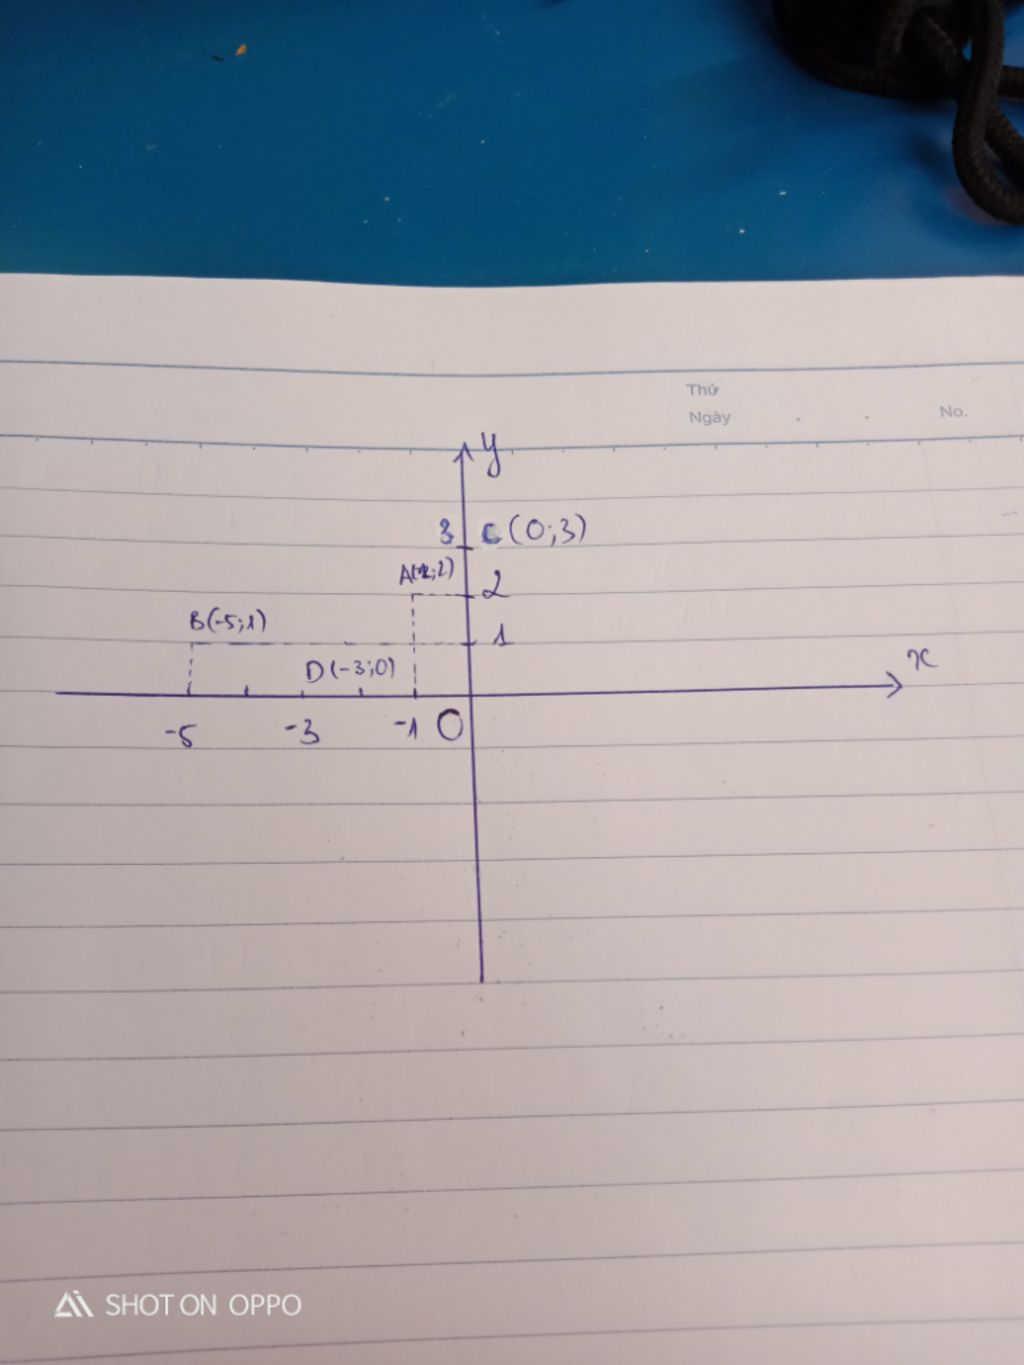 Thứ
Ngày . . No.
y
3 C (0;3)
2
B(-5;1)
1
D(-3;0)
x
-5 -3 -1 O
SHOT ON OPPO